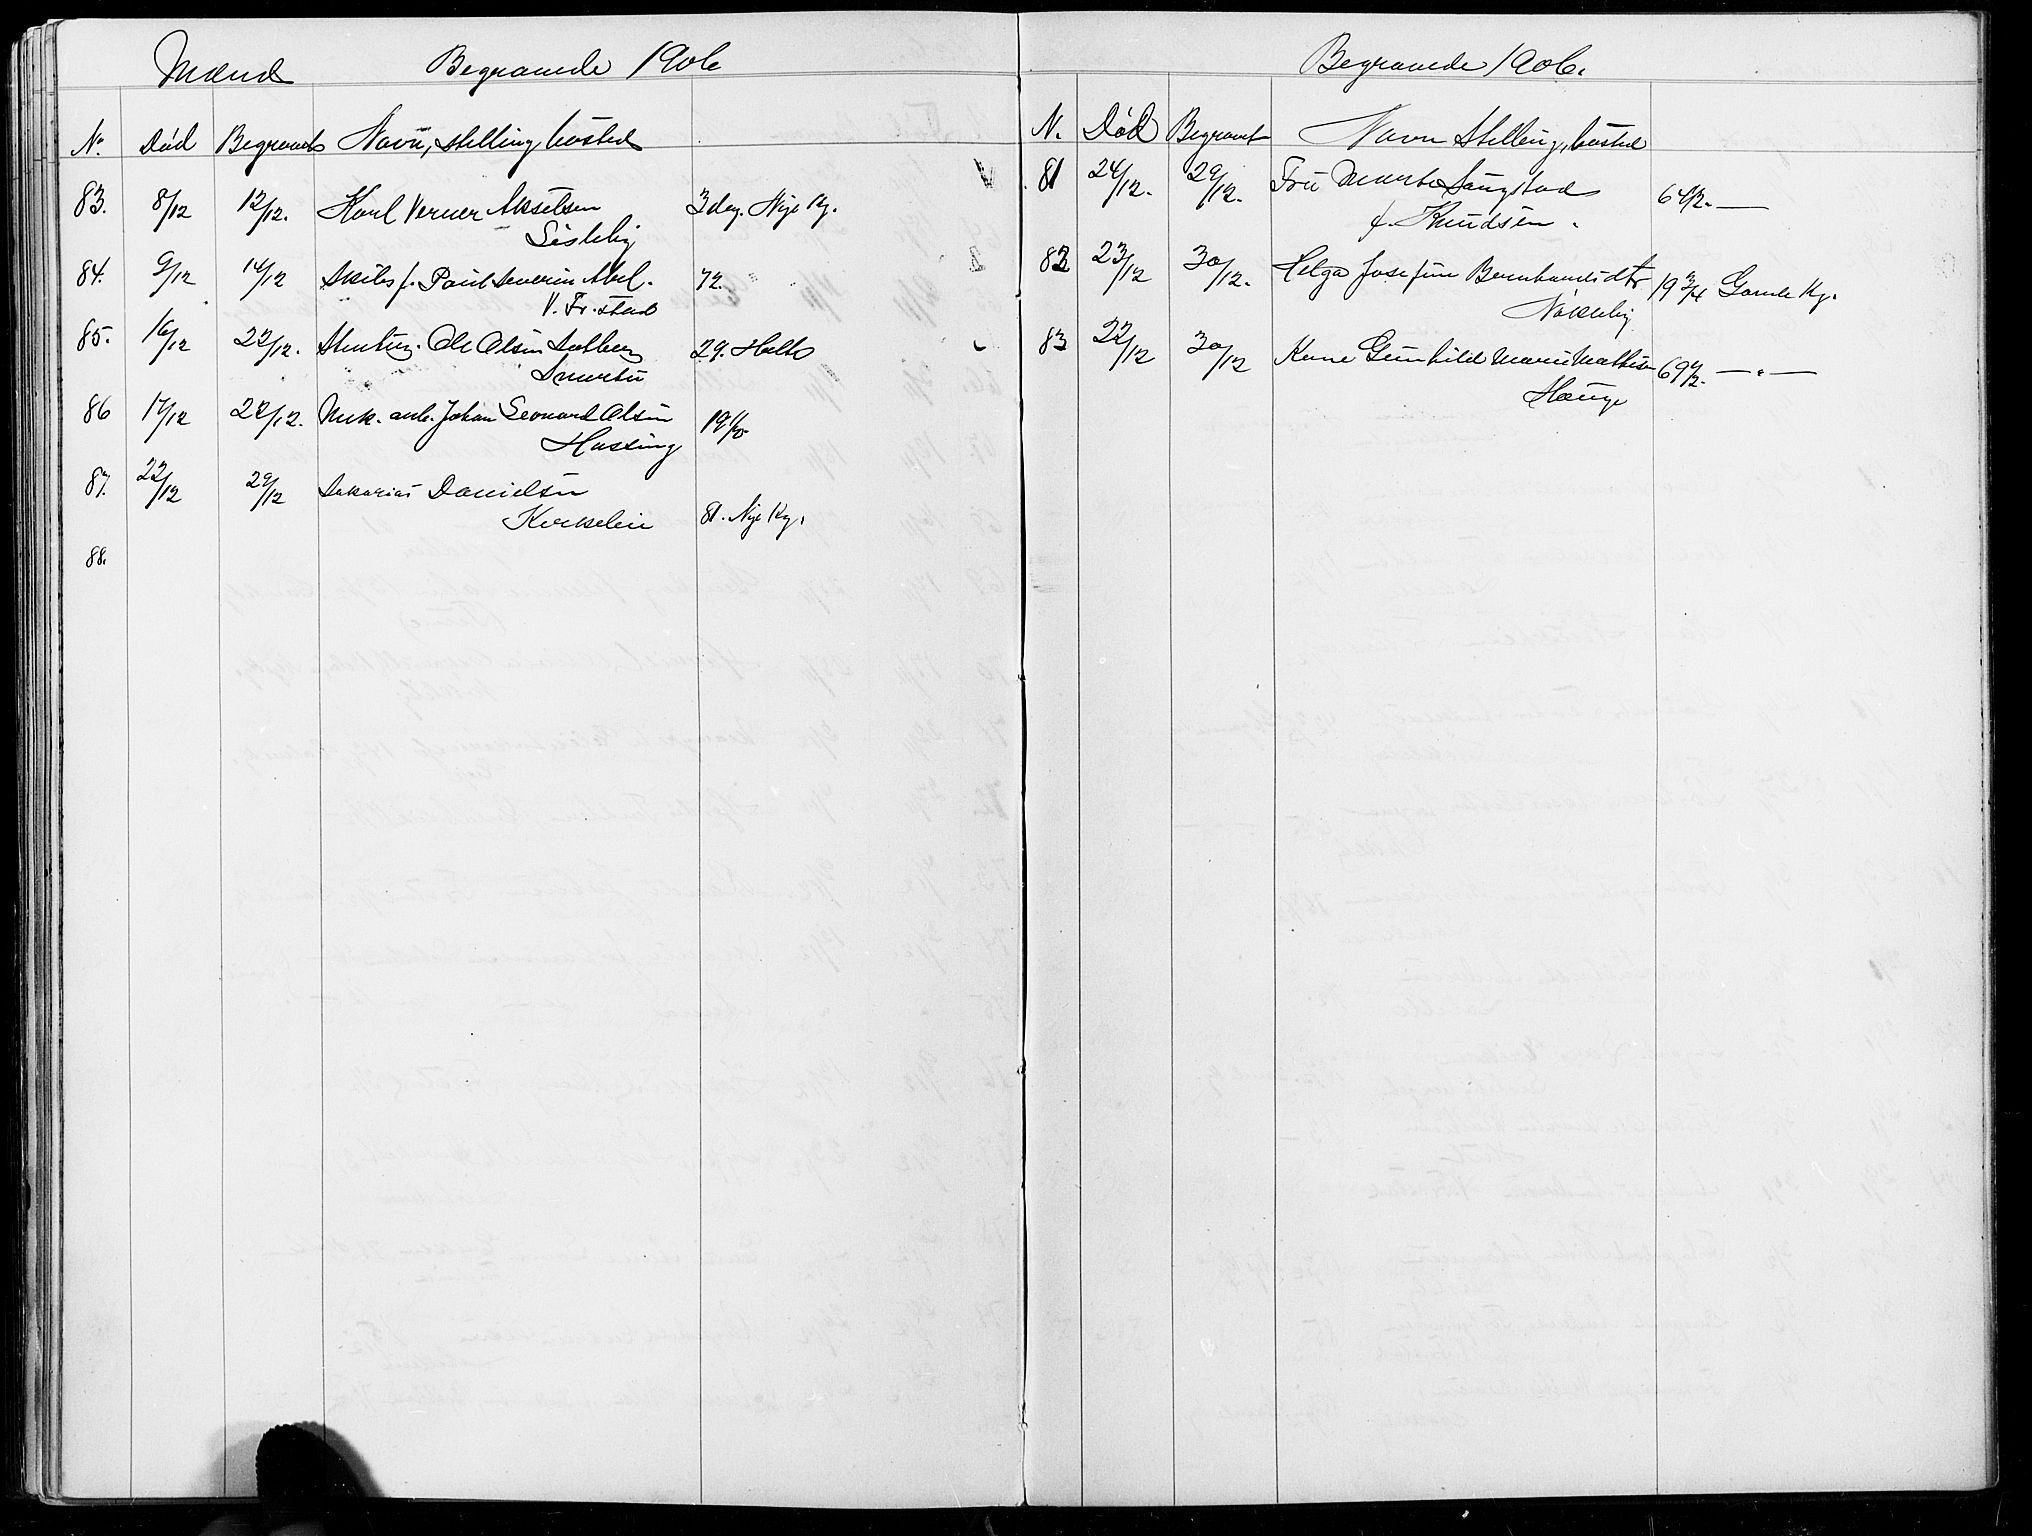 Mænd Begravede 1906
Nr. Død Begravet Navn, stilling, bosted
83. 8/12 12/12. Karl Verner Akselsen 3 dag. Nye Kg.
Lisleby
84. 9/12 14/12 Skibsf. Paul Severin Abel. 72.
V. Fr.stad
85. 16/12 22/12. Stenhug. Ole Olsen Solberg 29. Halto
86 17/12 22/12. Mek. arb. Johan Leonard Olsen
Hassing
87. 22/12 29/12 Sakarias Danielsen
Kirkelien 81. Nye Kg.
88.
Begravede 1906.
N. Død Begravet Navn Stilling, bosted
81 24/12. 29/12. Fru Marta Langstad 64 1/2. —
f. Knudsen.
82 23/12 30/12. Helga Josefine Bernhardsdtr 19 3/4 Gamle Kg.
Nøkleby
83 22/12 30/12 Kone Gunhild Marie Mathisen 69 1/2. — " —
Hauge